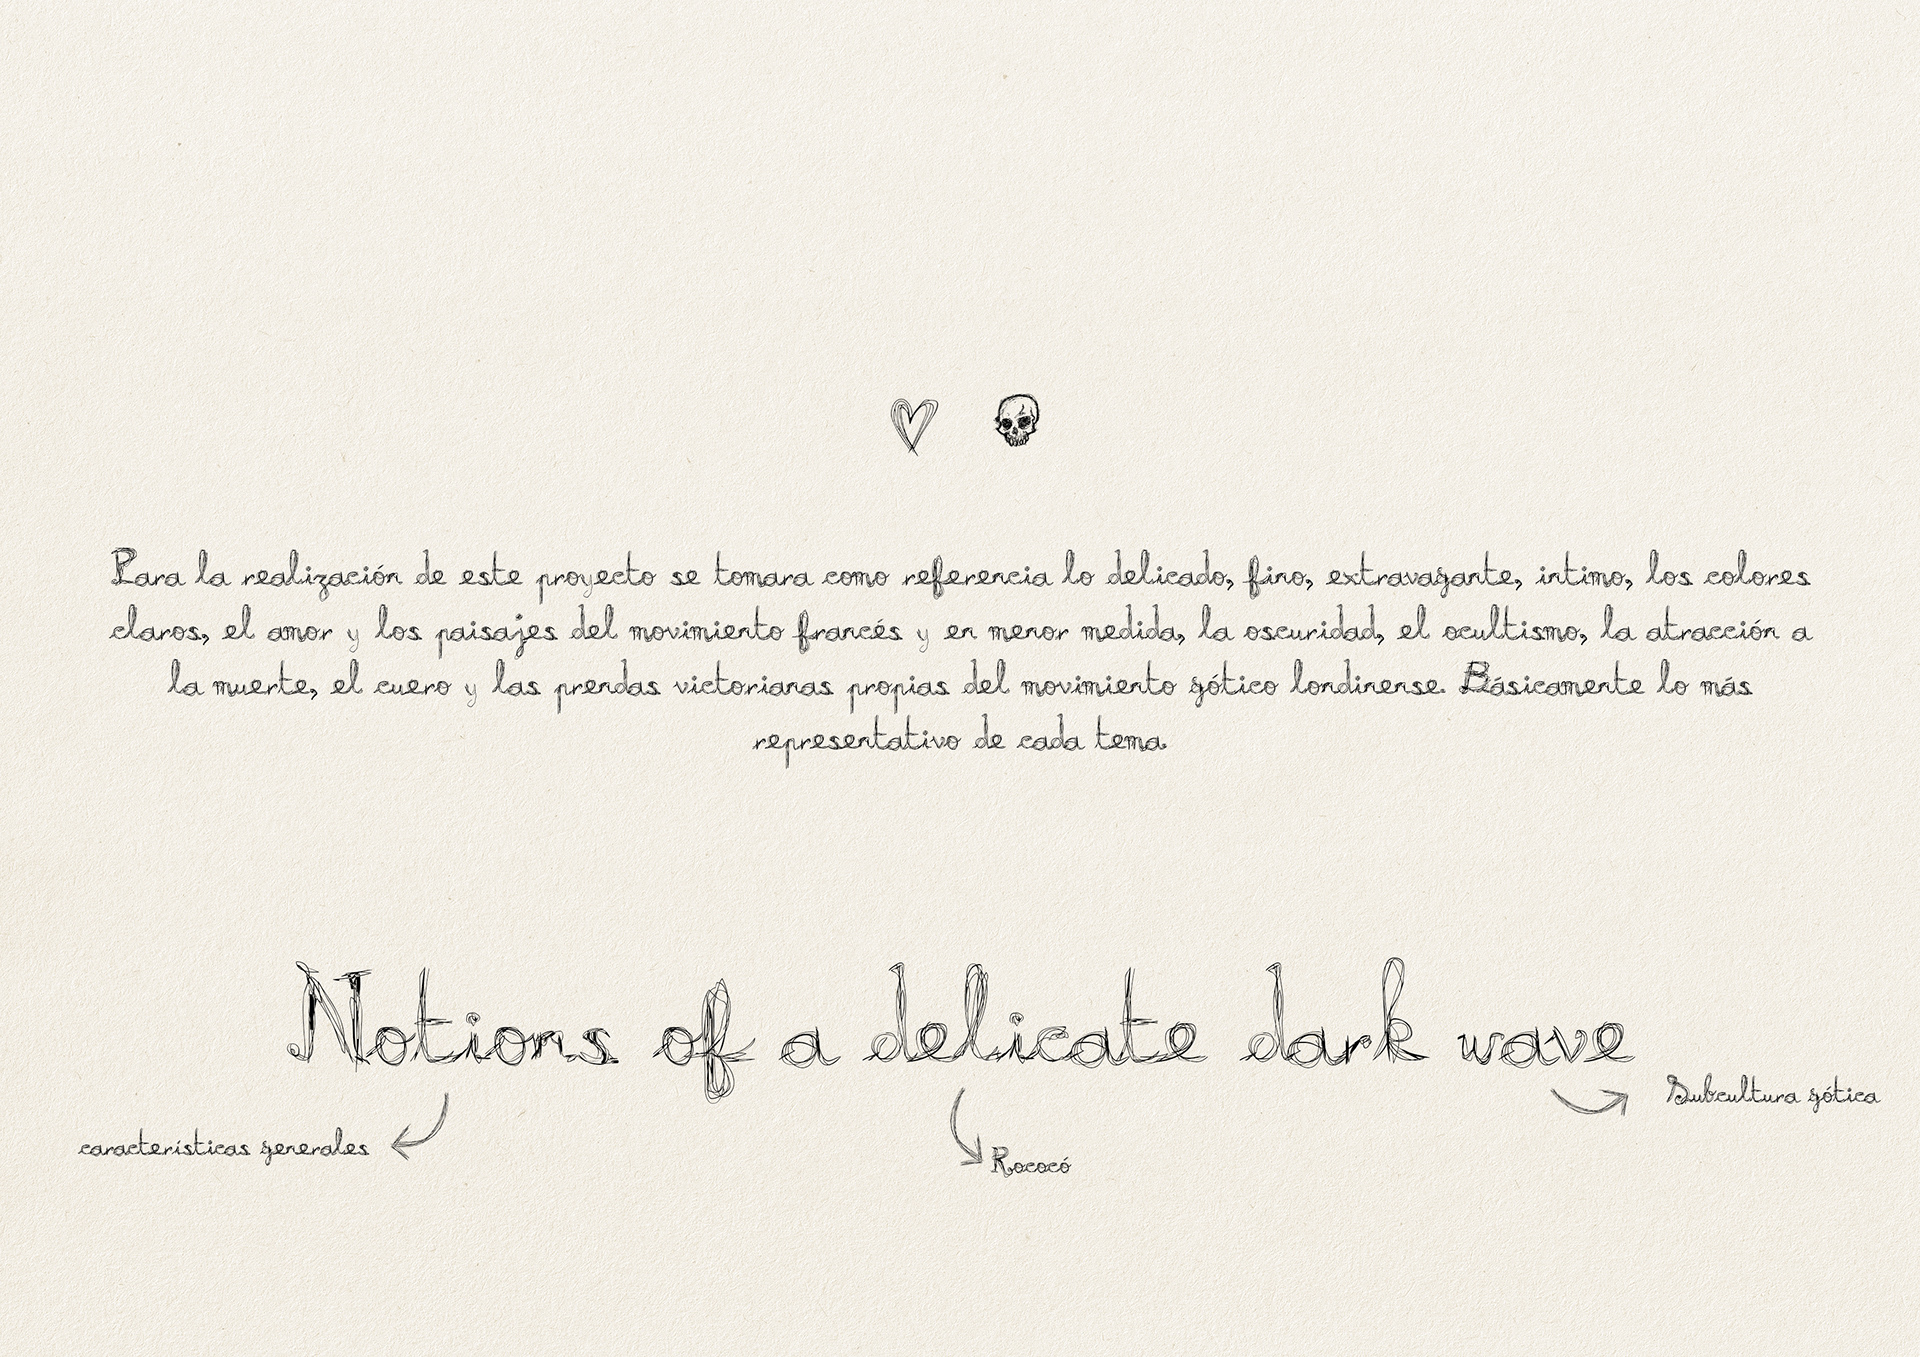 Para la realización de este proyecto se tomara como referencia lo delicado, fino, extravagante, intimo, los colores
claros, el amor y los paisajes del movimiento francés y en menor medida, la oscuridad, el ocultismo, la atracción a
la muerte, el cuero y las prendas victorianas propias del movimiento gótico londinense. Básicamente lo más
representativo de cada tema.
Notions of a delicate dark wave
características generales
Rococó
Subcultura gótica